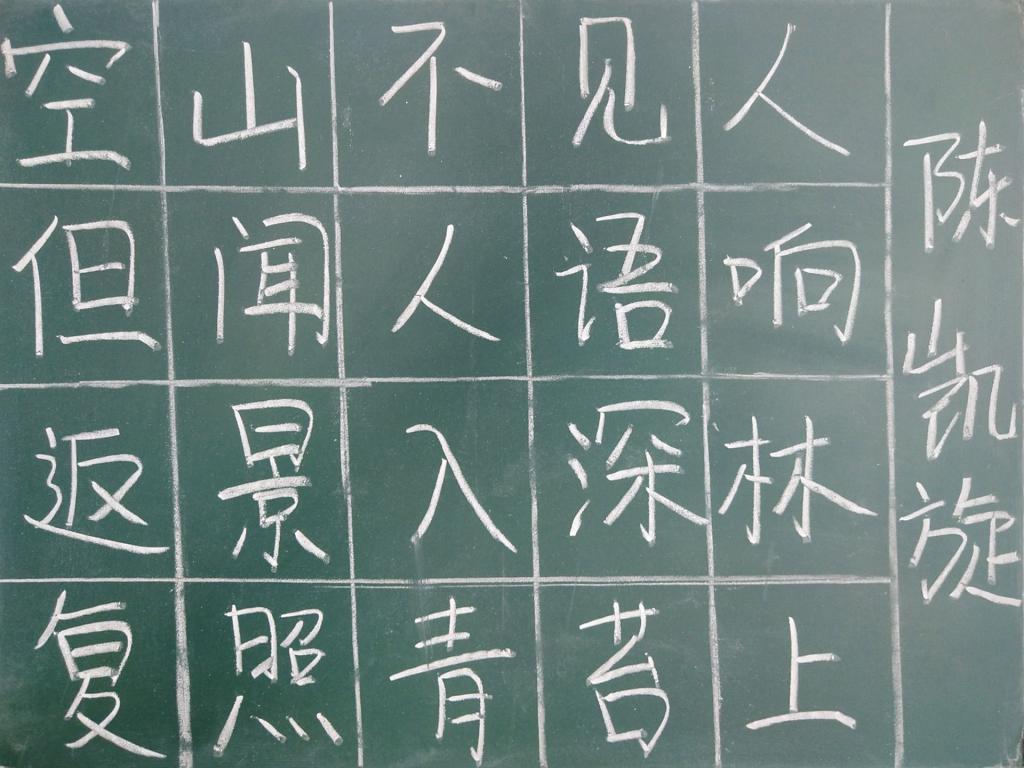 空山不见人
但闻人语响
返景入深林
复照青苔上
陈凯旋